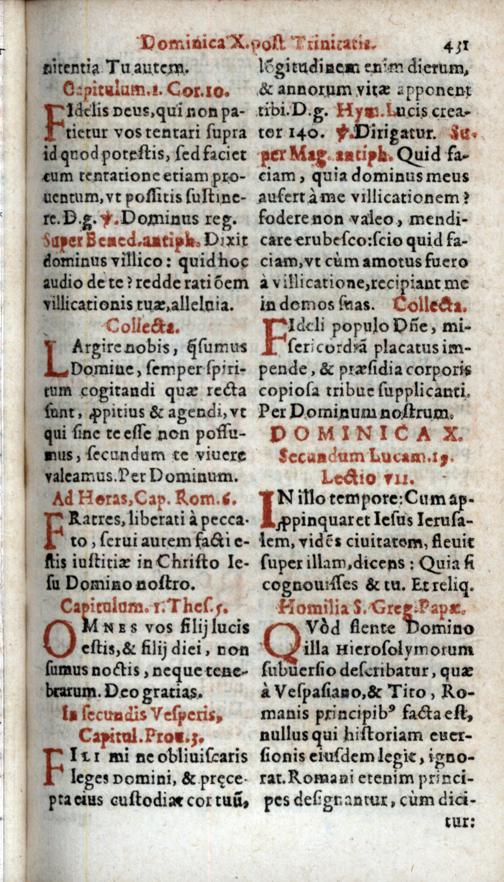 Dominica X. post Trinitatis. 431
nitentia Tu autem.
Capitulum. 1. Cor. 10.
FIdelis Deus, qui non pa-
tietur vos tentari supra
id quod potestis, sed faciet
cum tentatione etiam pro-
uentum, vt possitis sustine-
re. D. g. ℣. Dominus reg.
Super Bened. antiph. Dixit
dominus villico: quid hoc
audio de te? redde ratiõem
villicationis tuæ, alleluia.
Collecta.
LArgire nobis, q̃sumus
Domine, semper spiri-
tum cogitandi quæ recta
sunt, ꝓpitius & agendi, vt
qui sine te esse non possu-
mus, secundum te viuere
valeamus. Per Dominum.
Ad Horas, Cap. Rom. 6.
FRatres, liberati à pecca-
to, serui autem facti e-
stis iustitiæ in Christo Ie-
su Domino nostro.
Capitulum. 1. Thes. 5.
OMNES vos filij lucis
estis, & filij diei, non
sumus noctis, neque tene-
brarum. Deo gratias.
In secundis Vesperis,
Capitul. Prou. 3.
FIli mi ne obliuiscaris
leges Domini, & præce-
pta eius custodiat cor tuũ,
lõgitudinem enim dierum,
& annorum vitæ apponent
tibi. D. g. Hym. Lucis crea-
tor 140. ℣. Dirigatur. Su-
per Mag. antiph. Quid fa-
ciam, quia dominus meus
aufert à me villicationem?
fodere non valeo, mendi-
care erubesco: scio quid fa-
ciam, vt cùm amotus fuero
à villicatione, recipiant me
in domos suas. Collecta.
FIdeli populo Dñe, mi-
sericordiã placatus im-
pende, & præsidia corporis
copiosa tribue supplicanti.
Per Dominum nostrum.
DOMINICA X.
Secundum Lucam. 19.
Lectio vii.
IN illo tempore: Cum ap-
ꝓpinquaret Iesus Ierusa-
lem, vidẽs ciuitatem, fleuit
super illam, dicens: Quia si
cognouisses & tu. Et reliq.
Homilia S. Greg. Papæ.
QVòd flente Domino
illa Hierosolymorum
subuersio describatur, quæ
à Vespasiano, & Tito, Ro-
manis principibꝰ facta est,
nullus qui historiam euer-
sionis eiusdem legit, igno-
rat. Romani etenim princi-
pes designantur, cùm dici-
tur: